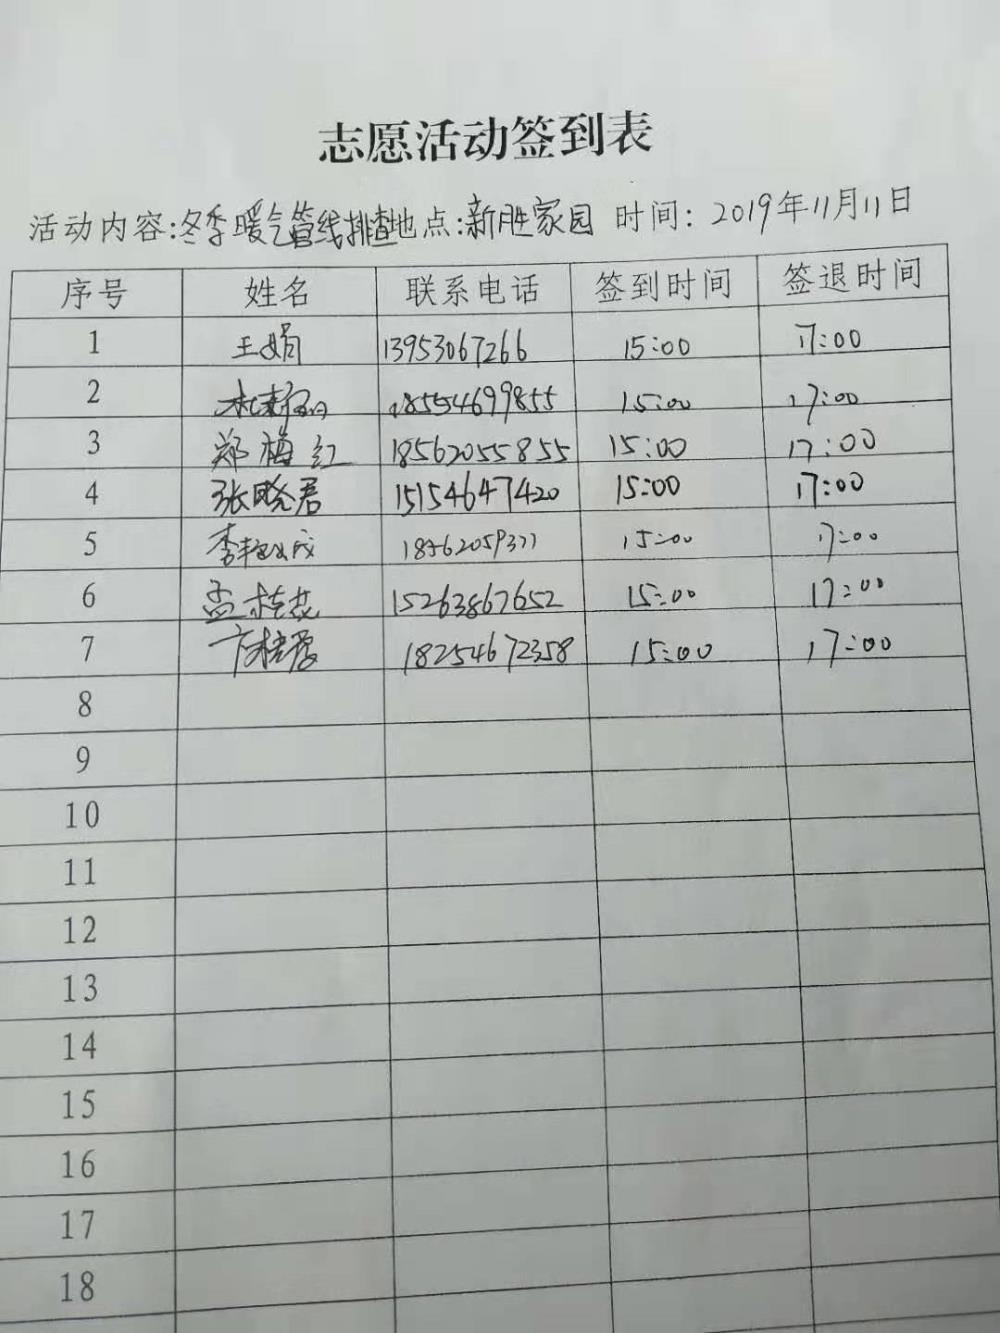 志愿活动签到表
活动内容:冬季暖气管线排查地点:新胜家园 时间: 2019年11月11日
序号 姓名 联系电话 签到时间 签退时间
1 王娟 13953067266 15:00 17:00
2 18554699855 15:00 17:00
3 郑梅红 18562055855 15:00 17:00
4 张晓君 15154647420 15:00 17:00
5 15:00 17:00
6 孟桂花 15263867652 15:00 17:00
7 18254672358 15:00 17:00
8
9
10
11
12
13
14
15
16
17
18